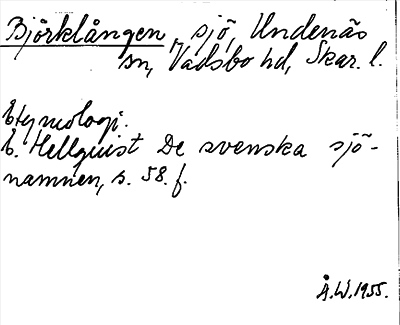 Björklången, sjö, Undenäs
sn, Vadsbo hd, Skar. l.
Etymologi.
E. Hellquist De svenska sjö-
namnen, s. 58. f.
Å.W. 1955.